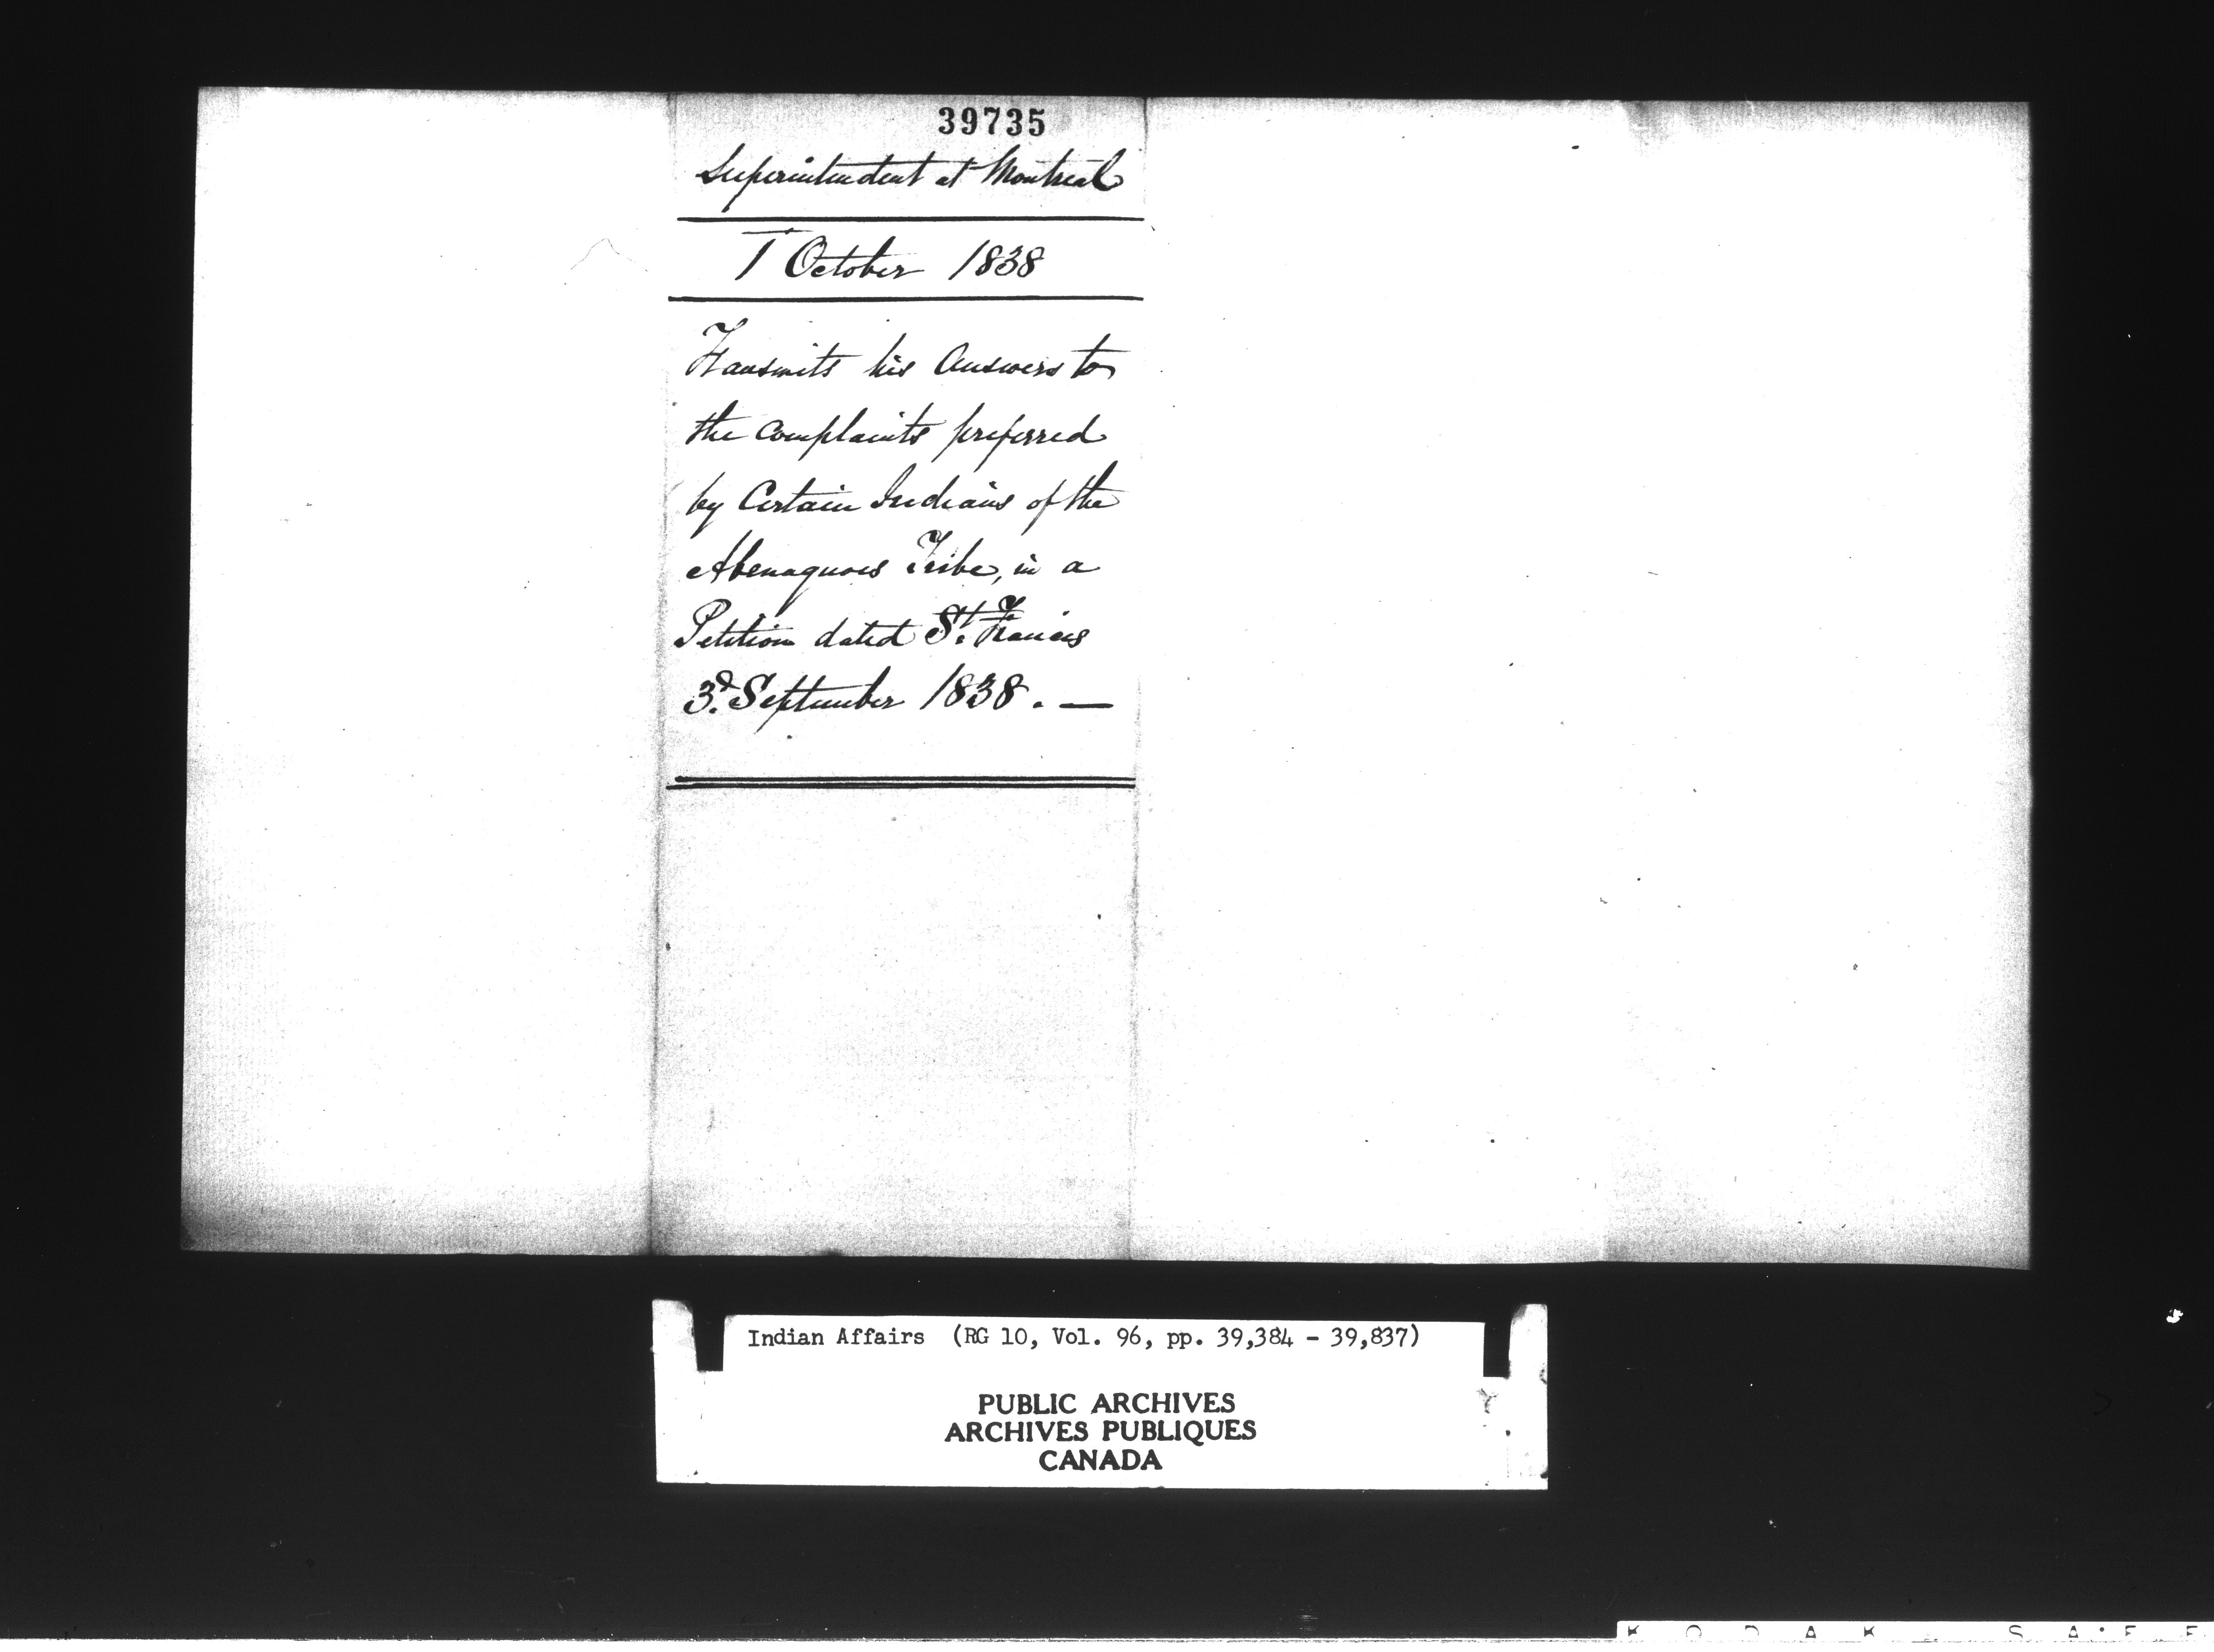 39735
Superintendent at Montreal
1 October 1838
Transmits his Answers to
the Complaints preferred
by Certain Indians of the
Abenaquois Tribe, in a
Petition dated St. Francis
3d. September 1838. —
Indian Affairs (RG 10, Vol. 96, pp. 39,384 - 39,837)
PUBLIC ARCHIVES
ARCHIVES PUBLIQUES
CANADA